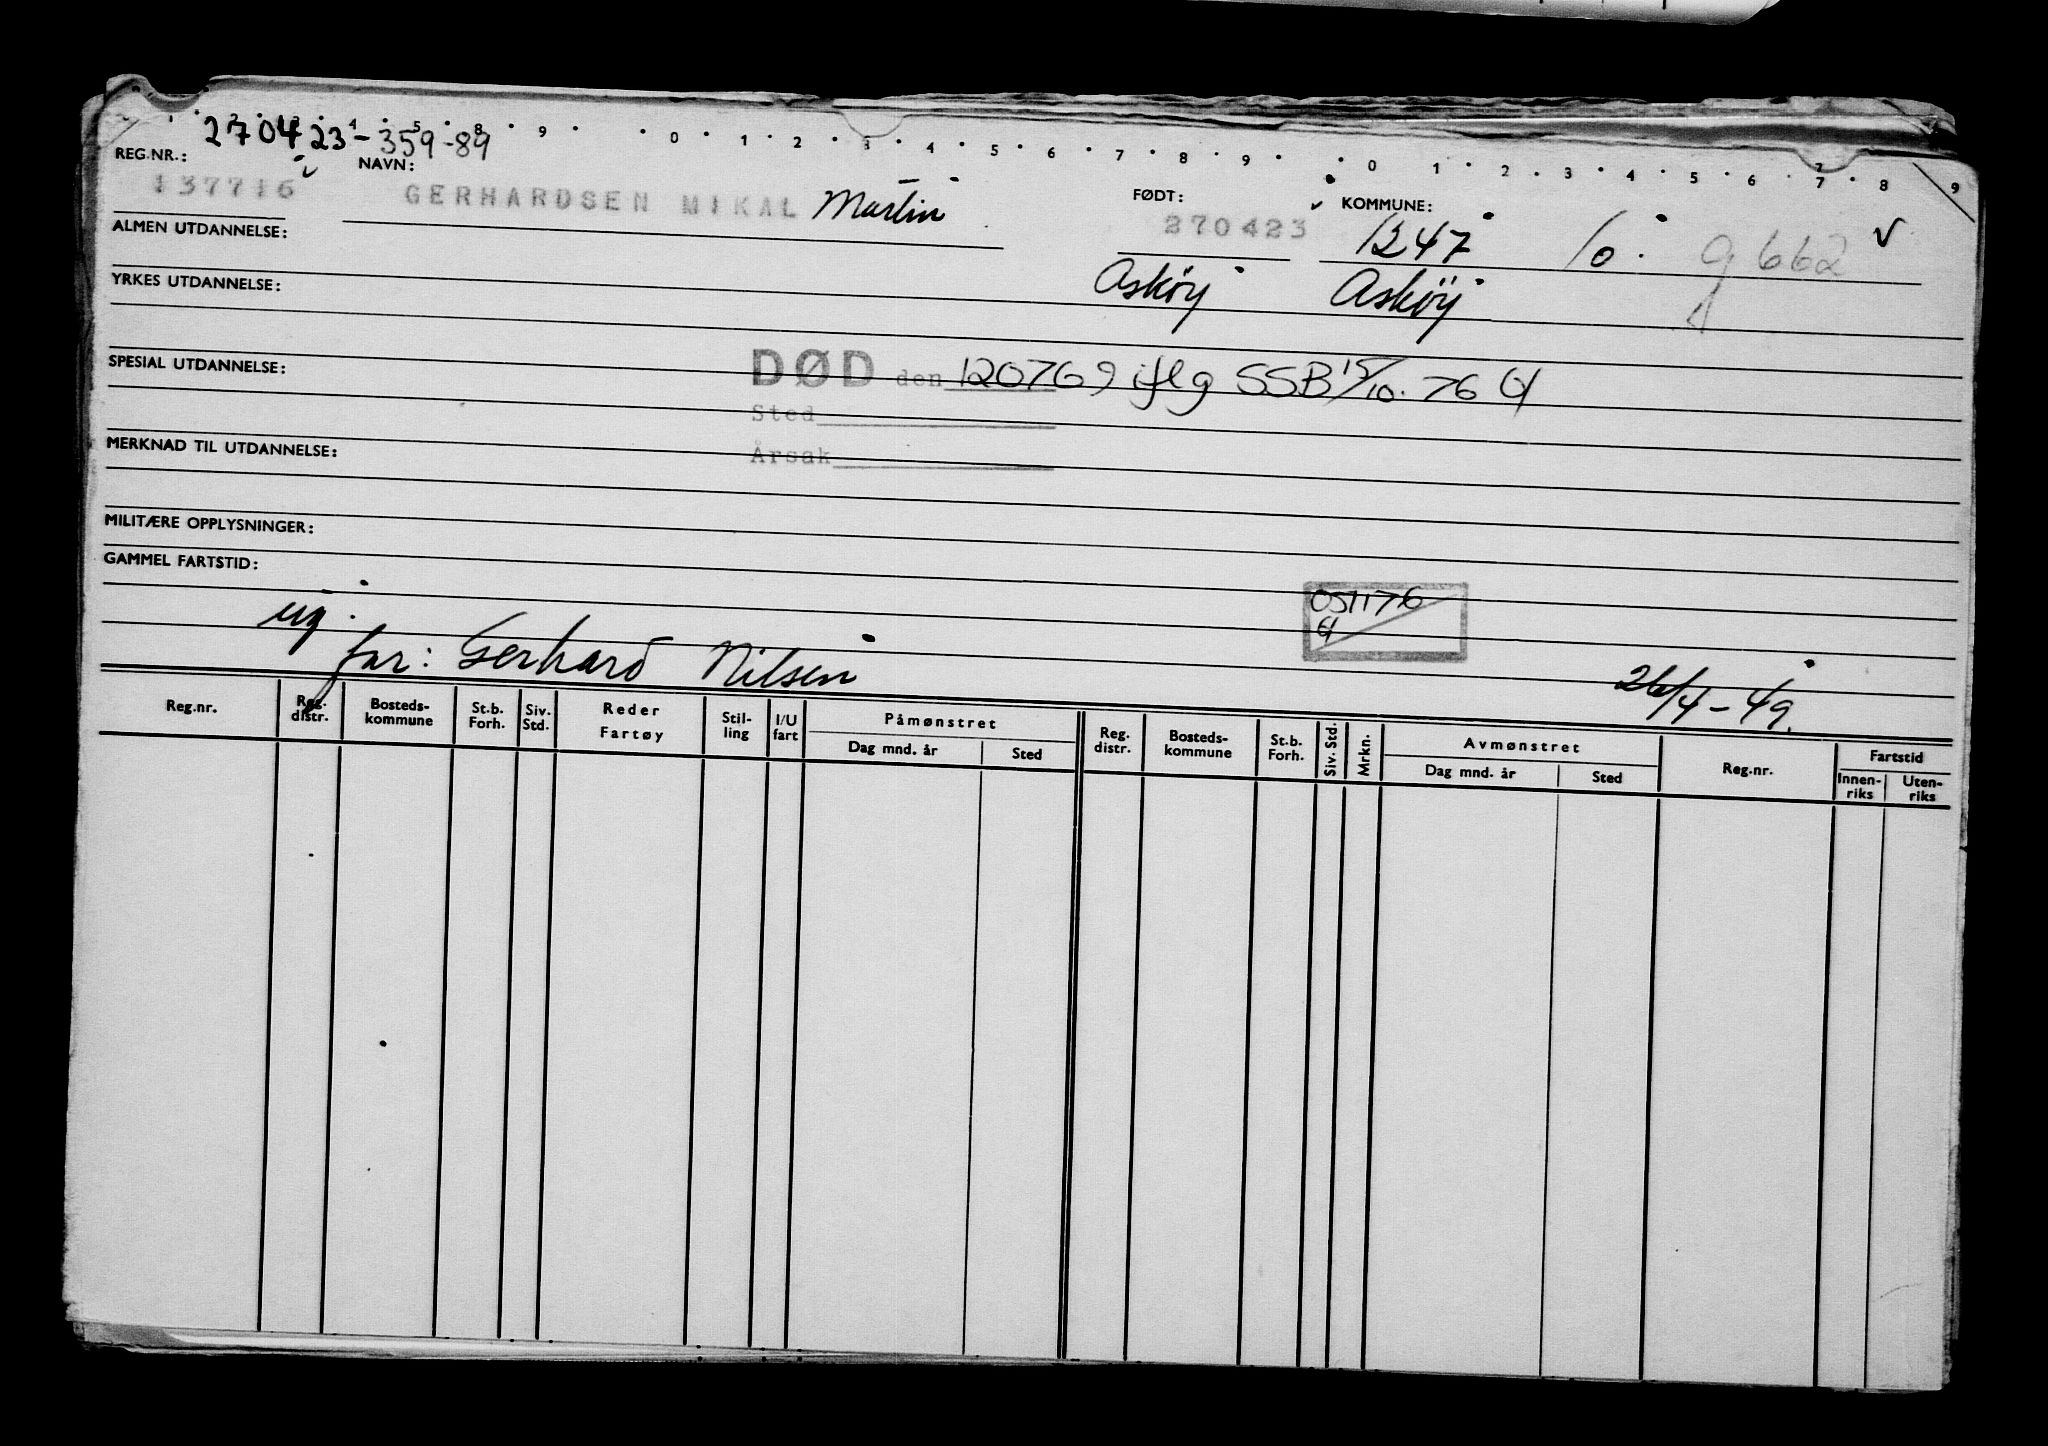 270423-359-89
9 · 0 · 1 · 2 · 3 · 4 · 5 · 6 · 7 · 8 · 9 · 0 1 · 2 · 3 · 4 · 5 · 6 · 7 · 8 9
REG.NR.: NAVN: FØDT: KOMMUNE:
137716 GERHARDSEN MIKAL Martin 270423 1247 10. g 662 v
ALMEN UTDANNELSE:
Askøy Askøy
YRKES UTDANNELSE:
SPESIAL UTDANNELSE:
DØD den 120769 iflg SSB 15/10.76 Gf
Sted
Årsak
MERKNAD TIL UTDANNELSE:
MILITÆRE OPPLYSNINGER:
GAMMEL FARTSTID:
051176
ug.
far: Gerhard Nilsen
26/4-49.
Reg.nr. Reg. distr. Bosteds-kommune St.b. Forh. Siv. Std. Reder Fartøy Stil-ling I/U fart Påmønstret Dag mnd. år Sted Reg. distr. Bosteds-kommune St.b. Forh. Siv. Std. Mrkn. Avmønstret Dag mnd. år Sted Reg.nr. Fartstid Innen-riks Uten-riks